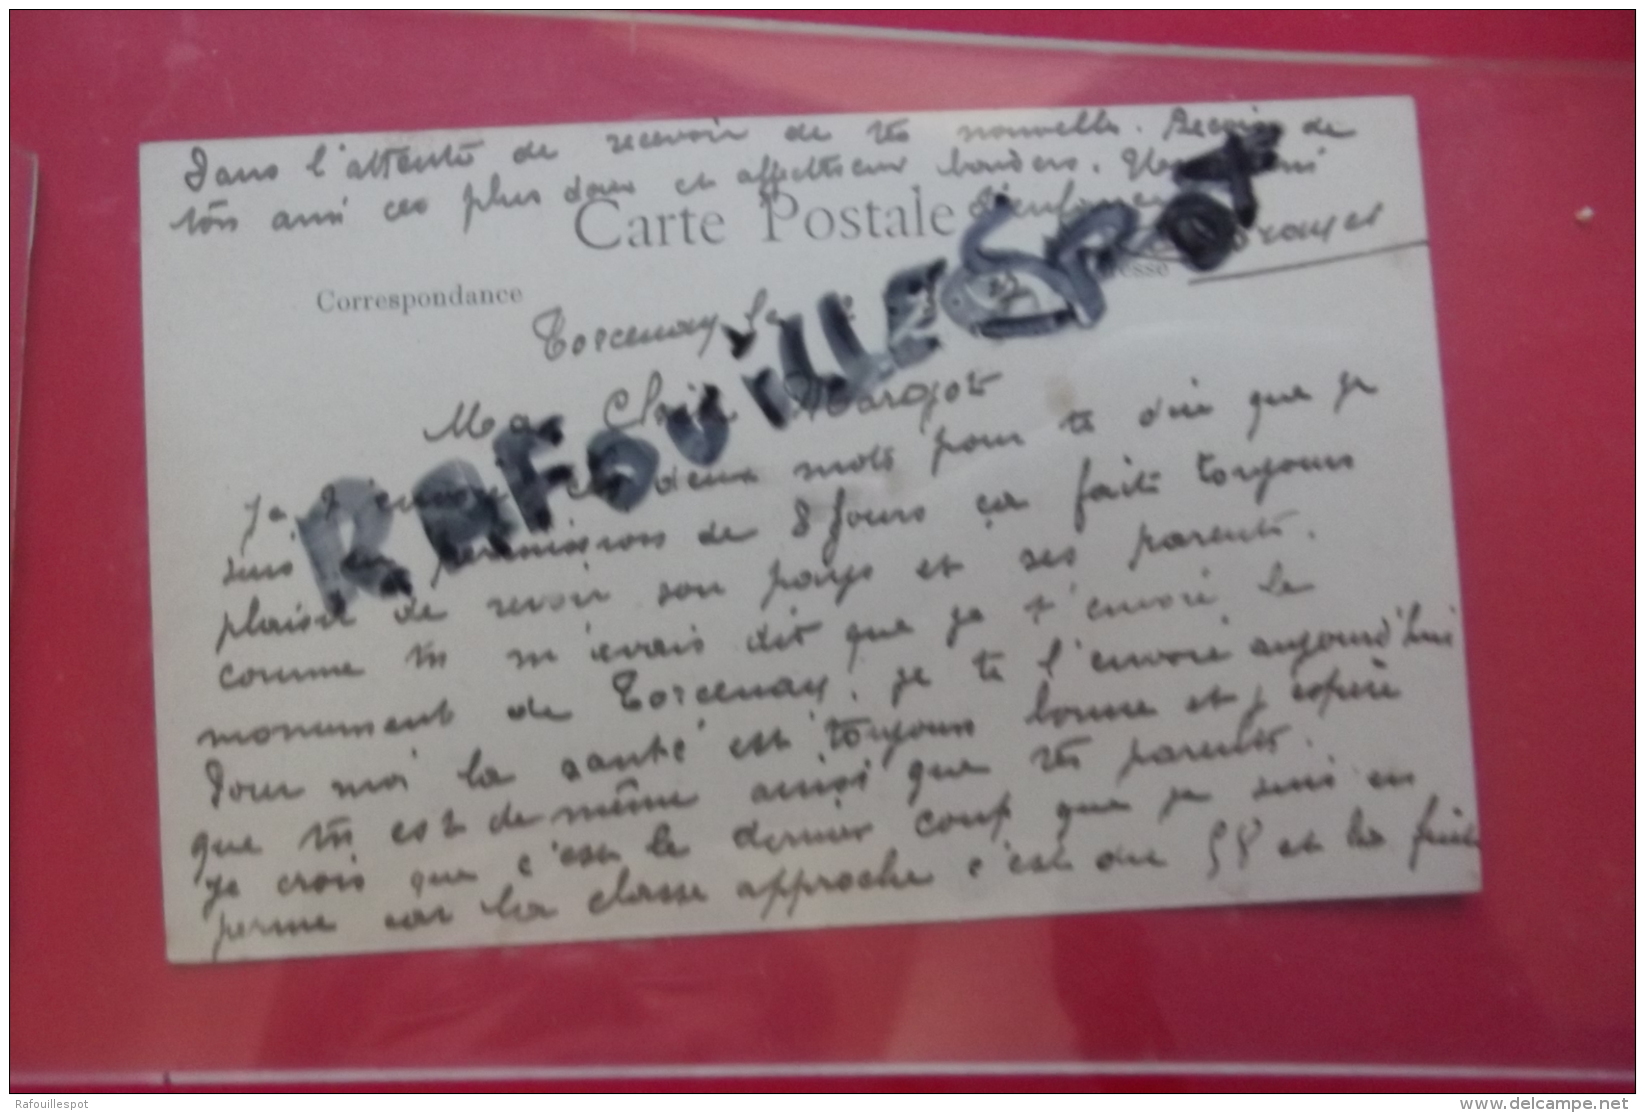 Dans l'attente de recevoir de tes nouvelle. Recois de
ton ami ces plus doux et affectueux baisers.
Carte Postale
Correspondance
Torcenay le
RAFOUILLESPOT
Ma Margot
Je t'envoie ces deux mots pour te dire que je
suis en permission de 8 jours ça fait toujours
plaisir de revoir son pays et ses parents.
comme tu m'avais dit que je t'envoie le
monument de Torcenay. je te l'envoie aujourd'hui
Pour moi la santé est toujours bonne et j espère
que tu est de même ainsi que tes parents.
je crois que c'est le dernier coup que je suis en
perme car la classe approche c'est du 58 et la fuite
Rafouillespot
delcampe.net